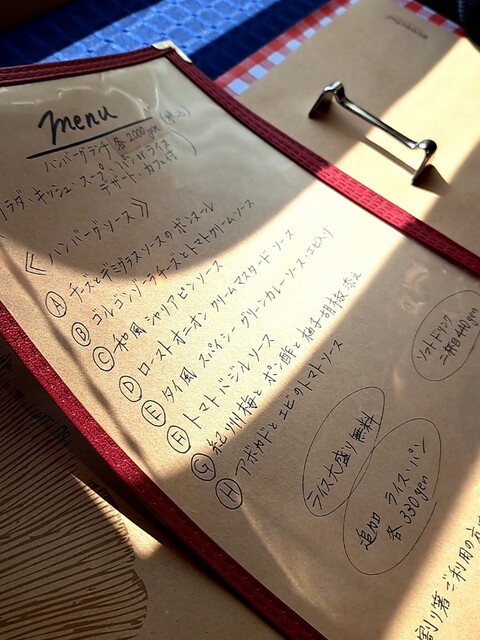 menu
ハンバーグランチ 各2000yen (税込)
サラダ・キッシュ・スープ・パンorライス
デザート・カフェ付
《ハンバーグソース》
Ⓐ チーズとデミグラスソースのボンヌール
Ⓑ ゴルゴンゾーラチーズとトマトクリームソース
Ⓒ 和風シャリアピンソース
Ⓓ ローストオニオン クリームマスタードソース
Ⓔ タイ風 スパイシーグリーンカレーソース・エビ入り
Ⓕ トマトバジルソース
Ⓖ 紀州梅とポン酢と柚子胡椒添え
Ⓗ アボカドとエビのトマトソース
ソフトドリンク
二杯目440yen
ライス大盛り無料
追加 ライス・パン
各330yen
割り箸ご利用の方